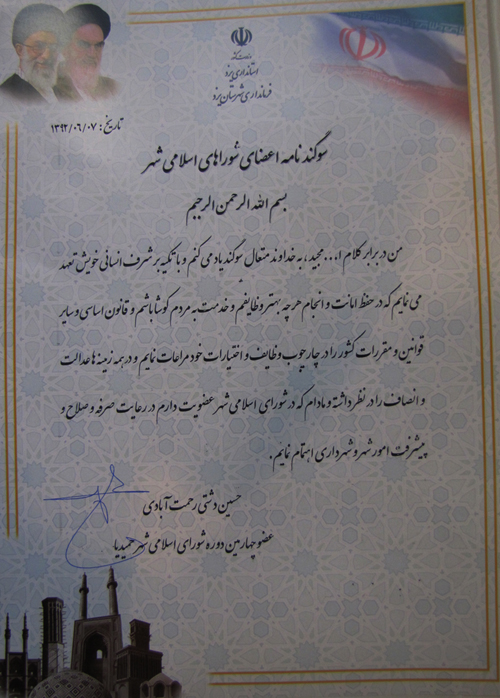 وزارت کشور
استانداری یزد
فرمانداری شهرستان یزد
تاریخ: ۱۳۹۲/۰۶/۰۷
سوگند نامه اعضای شوراهای اسلامی شهر
بسم الله الرحمن الرحیم
من در برابر کلام ا... مجید، به خداوند متعال سوگند یاد می کنم و با تکیه بر شرف انسانی خویش تعهد
می نمایم که در حفظ امانت و انجام هر چه بهتر وظایفم و خدمت به مردم کوشا باشم و قانون اساسی و سایر
قوانین و مقررات کشور را در چارچوب وظایف و اختیارات خود مراعات نمایم و در همه زمینه ها عدالت
و انصاف را در نظر داشته و مادام که در شورای اسلامی شهر عضویت دارم در رعایت صرفه و صلاح و
پیشرفت امور شهر و شهرداری اهتمام نمایم.
حسین دشتی رحمت آبادی
عضو چهارمین دوره شورای اسلامی شهر حمیدیا